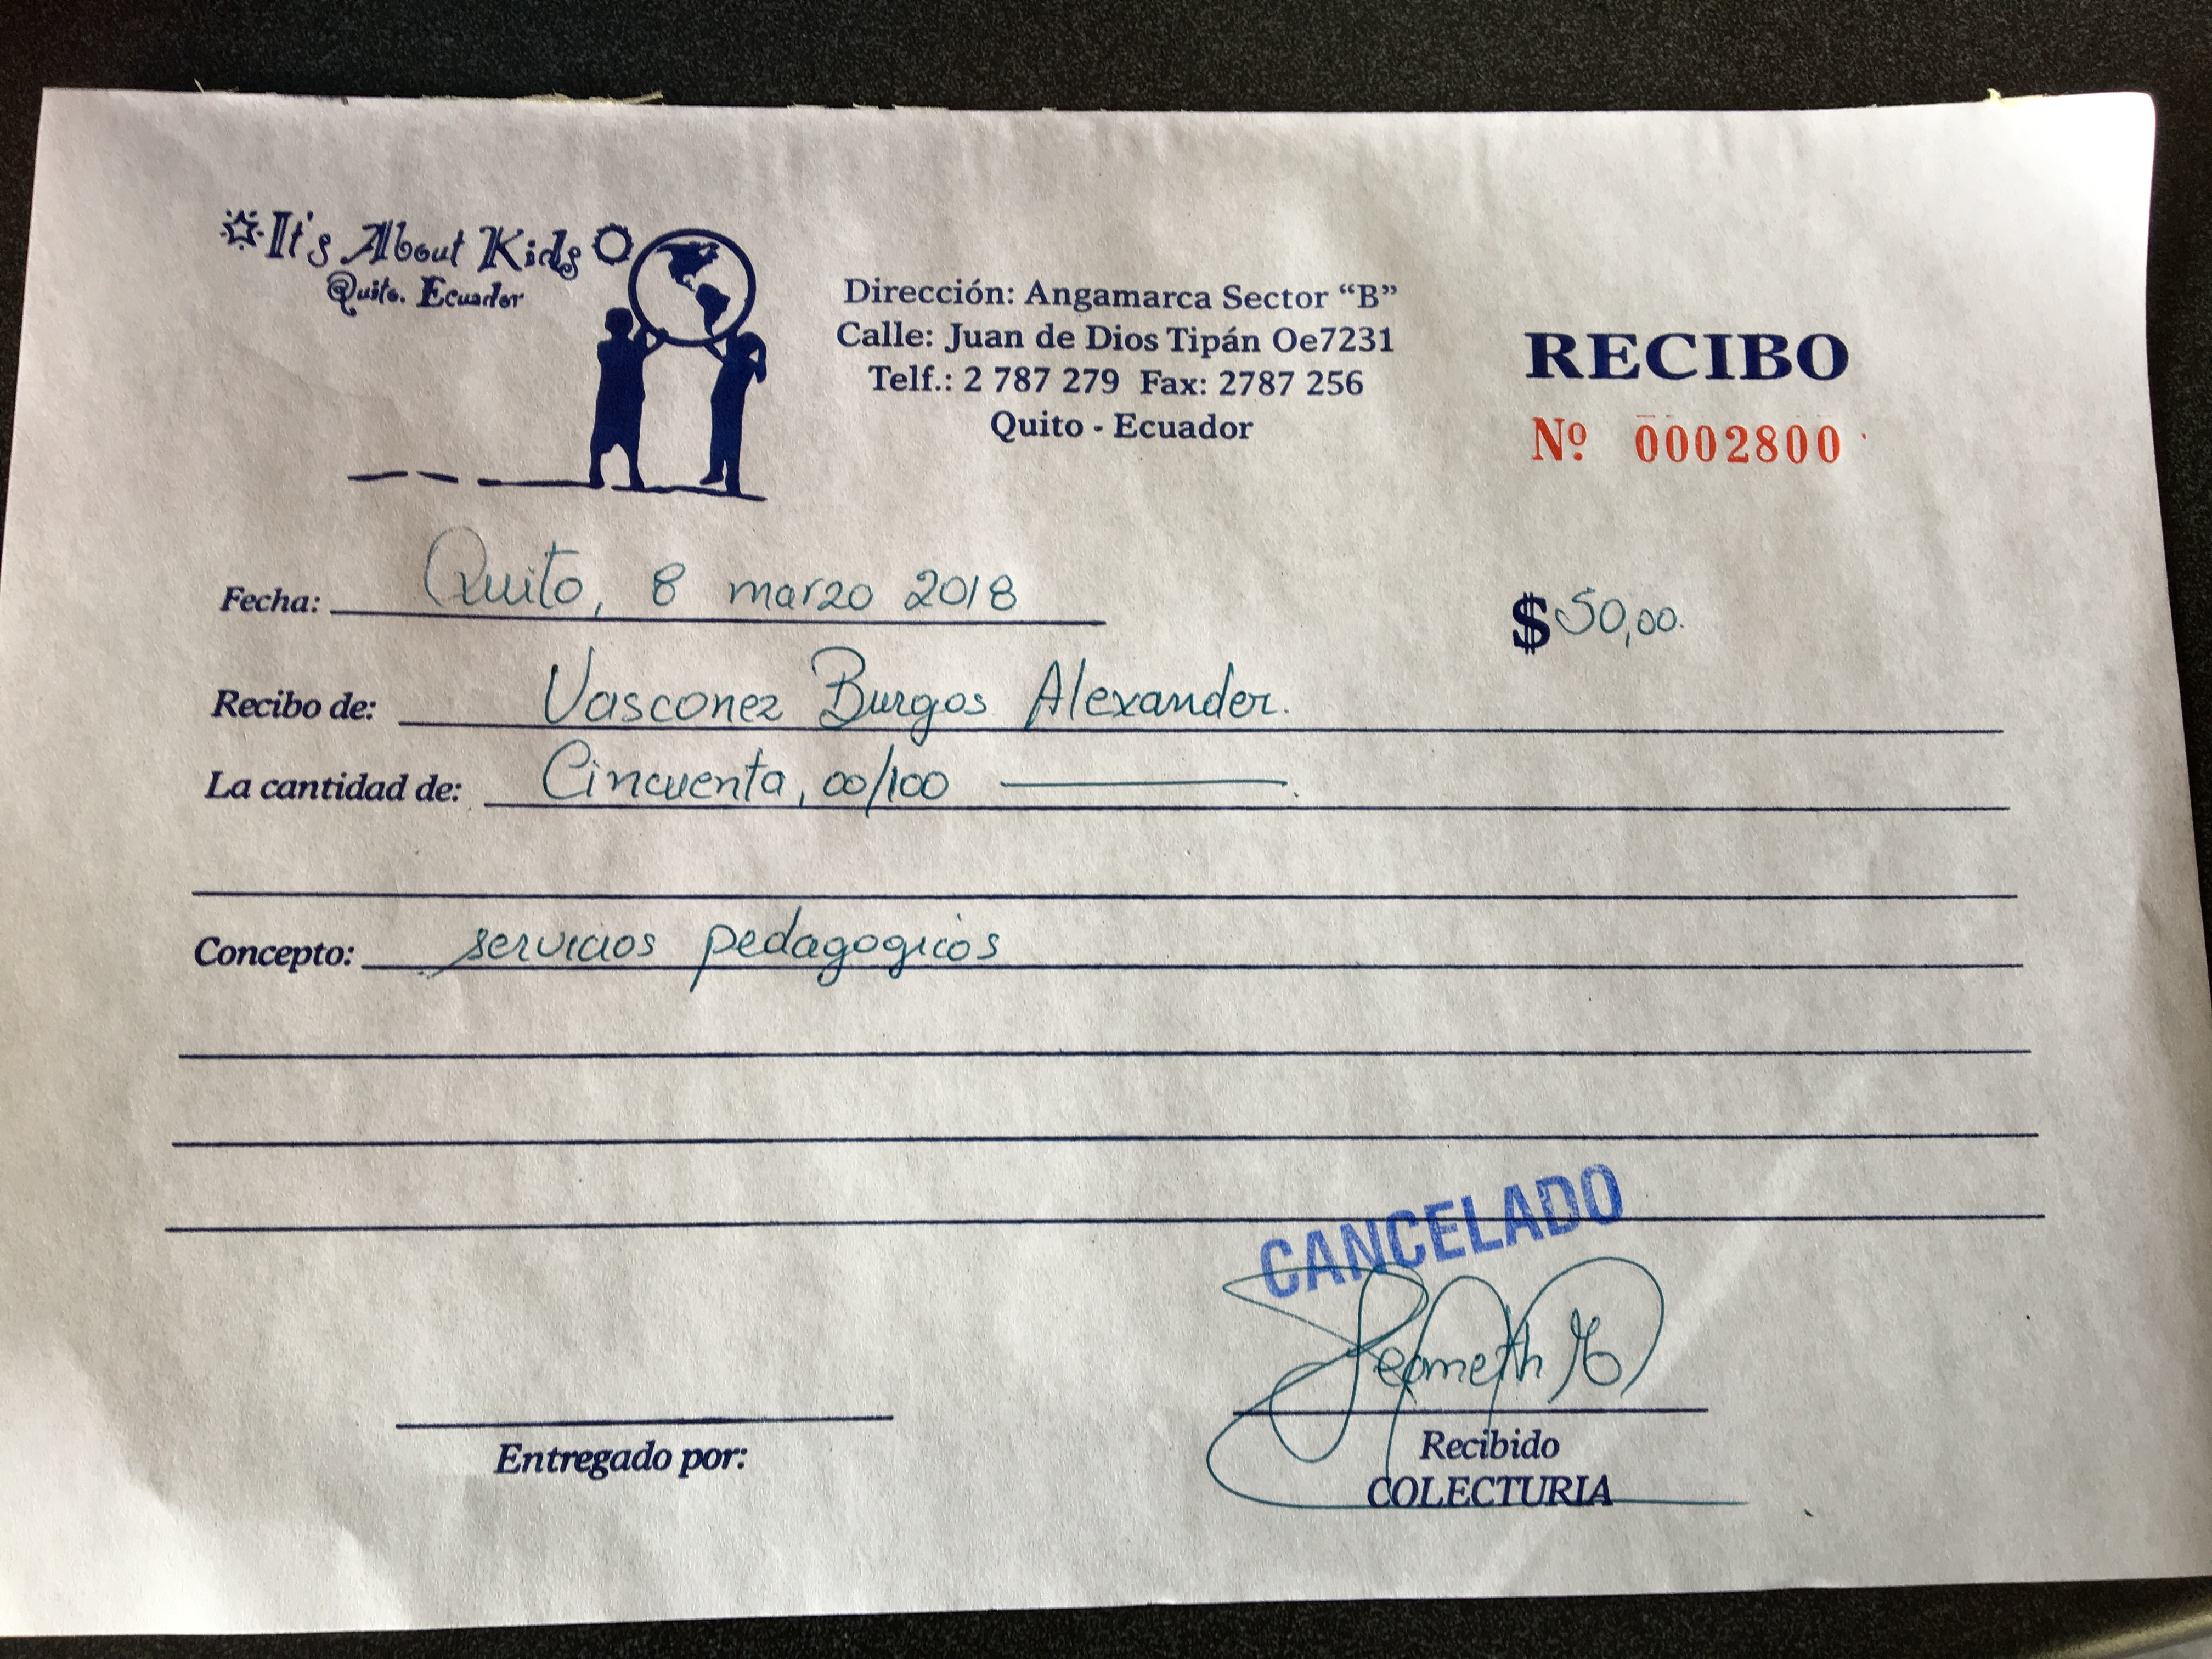 It's About Kids
Quito. Ecuador
Dirección: Angamarca Sector “B”
Calle: Juan de Dios Tipán Oe7231
Telf.: 2 787 279 Fax: 2787 256
Quito - Ecuador
RECIBO
Nº 0002800
$ 50,00.
Fecha: Quito, 8 marzo 2018
Recibo de: Vasconez Burgos Alexander.
La cantidad de: Cincuenta, 00/100
Concepto: servicios pedagogicos
CANCELADO
Entregado por:
Recibido
COLECTURIA